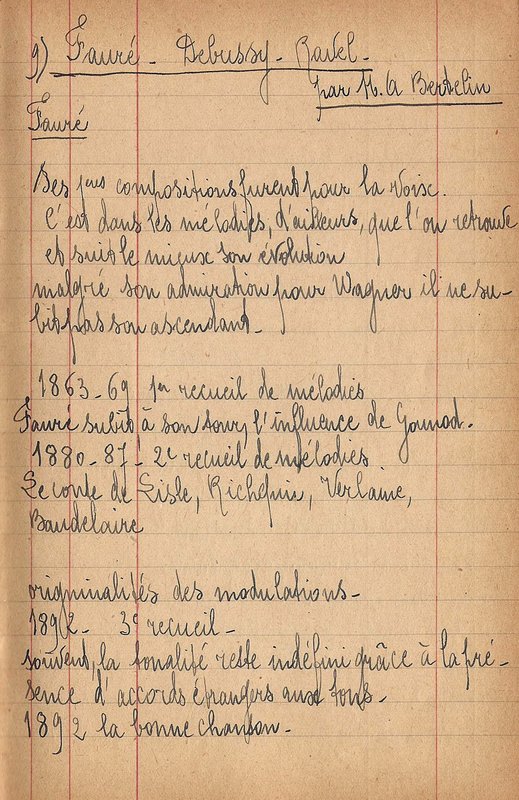 9) Fauré - Debussy - Ravel -
par M. A Bertelin
Fauré
Ses 1ères compositions furent pour la voix.
C'est dans les mélodies, d'ailleurs, que l'on retrouve
et suit le mieux son évolution
malgré son admiration pour Wagner il ne su-
bit pas son ascendant -
1863 - 69 1er recueil de mélodies
Fauré subit à son tour, l'influence de Gounod.
1880 - 87 - 2e recueil de mélodies
Leconte de Lisle, Richepin, Verlaine,
Baudelaire
originalités des modulations -
1892 - 3e recueil -
souvent, la tonalité reste indéfini grâce à la pré-
sence d'accords étrangers aux tons -
1892 la bonne chanson -